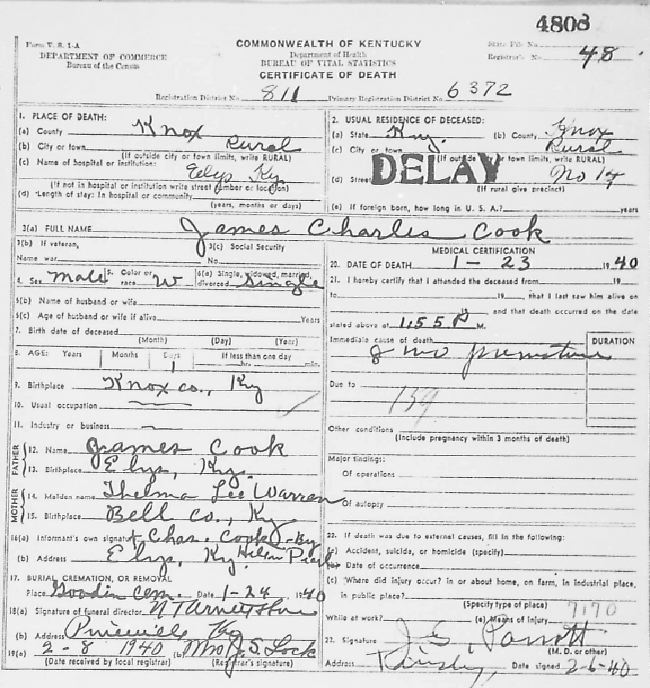 4808
Form V. S. 1-A
DEPARTMENT OF COMMERCE
Bureau of the Census
COMMONWEALTH OF KENTUCKY
Department of Health
BUREAU OF VITAL STATISTICS
CERTIFICATE OF DEATH
State File No.
Registrar's No. 48
Registration District No. 811 Primary Registration District No. 6372
1. PLACE OF DEATH:
(a) County Knox
(b) City or town Rural
(If outside city or town limits, write RURAL)
(c) Name of hospital or institution:
Elys Ky
(If not in hospital or institution write street number or location)
(d) Length of stay: In hospital or community
(years, months or days)
2. USUAL RESIDENCE OF DECEASED:
(a) State Ky. (b) County Knox
(c) City or town Rural
(If outside city or town limits, write RURAL)
DELAY
(d) Street No 14
(If rural give precinct)
(e) If foreign born, how long in U. S. A.? years
3(a) FULL NAME James Charles Cook
3(b) If veteran,
Name war
3(c) Social Security
No.
4. Sex Male 5. Color or race W 6(a) Single, widowed, married, divorced Single
6(b) Name of husband or wife
6(c) Age of husband or wife if alive Years
7. Birth date of deceased
(Month) (Day) (Year)
8. AGE: Years Months Days If less than one day
1 hr. min.
9. Birthplace Knox co., Ky
10. Usual occupation
11. Industry or business
FATHER
12. Name James Cook
13. Birthplace Elys, Ky.
MOTHER
14. Maiden name Thelma Lee Warren
15. Birthplace Bell co., Ky
16(a) Informant's own signature Chas. Cook - By
(b) Address Elys, Ky Helen
17. BURIAL, CREMATION, OR REMOVAL
Place Goodin Cem. Date 1-24 1940
18(a) Signature of funeral director
(b) Address Pineville Ky
19(a) 2-8 1940 (b) Mrs J. S. Lock
(Date received by local registrar) (Registrar's signature)
MEDICAL CERTIFICATION
20. DATE OF DEATH 1-23 1940
21. I hereby certify that I attended the deceased from 19
to 19 , that I last saw him alive on
19 and that death occurred on the date
stated above at 1:55 P M.
Immediate cause of death
DURATION
7 mo premature
Due to
159
Other conditions
(Include pregnancy within 3 months of death)
Major findings:
Of operations
Of autopsy
22. If death was due to external causes, fill in the following:
(a) Accident, suicide, or homicide (specify)
(b) Date of occurrence
(c) Where did injury occur? in or about home, on farm, in industrial place,
in public place?
(Specify type of place)
7170
While at work? (e) Means of injury
23. Signature J. E. Parrott
(M. D. or other)
Address Date signed 2-6-40